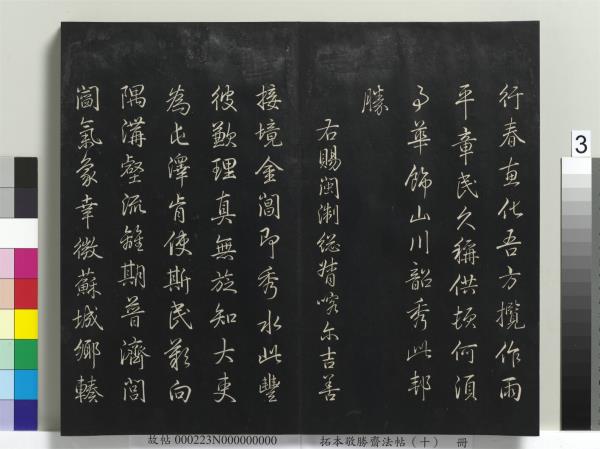 行春宣化吾方攬作雨
平章民久稱供頓何須
事華飾山川韶秀此邦
勝
右賜閩浙總督喀尔吉善
接境金閶即秀水此豐
彼歉理真無旋知大吏
為屯澤肯使斯民艱向
隅溝壑流離期普濟閭
閻氣象幸微蘇城鄉轃
3
故帖 000223N000000000
拓本敬勝齋法帖（十） 冊